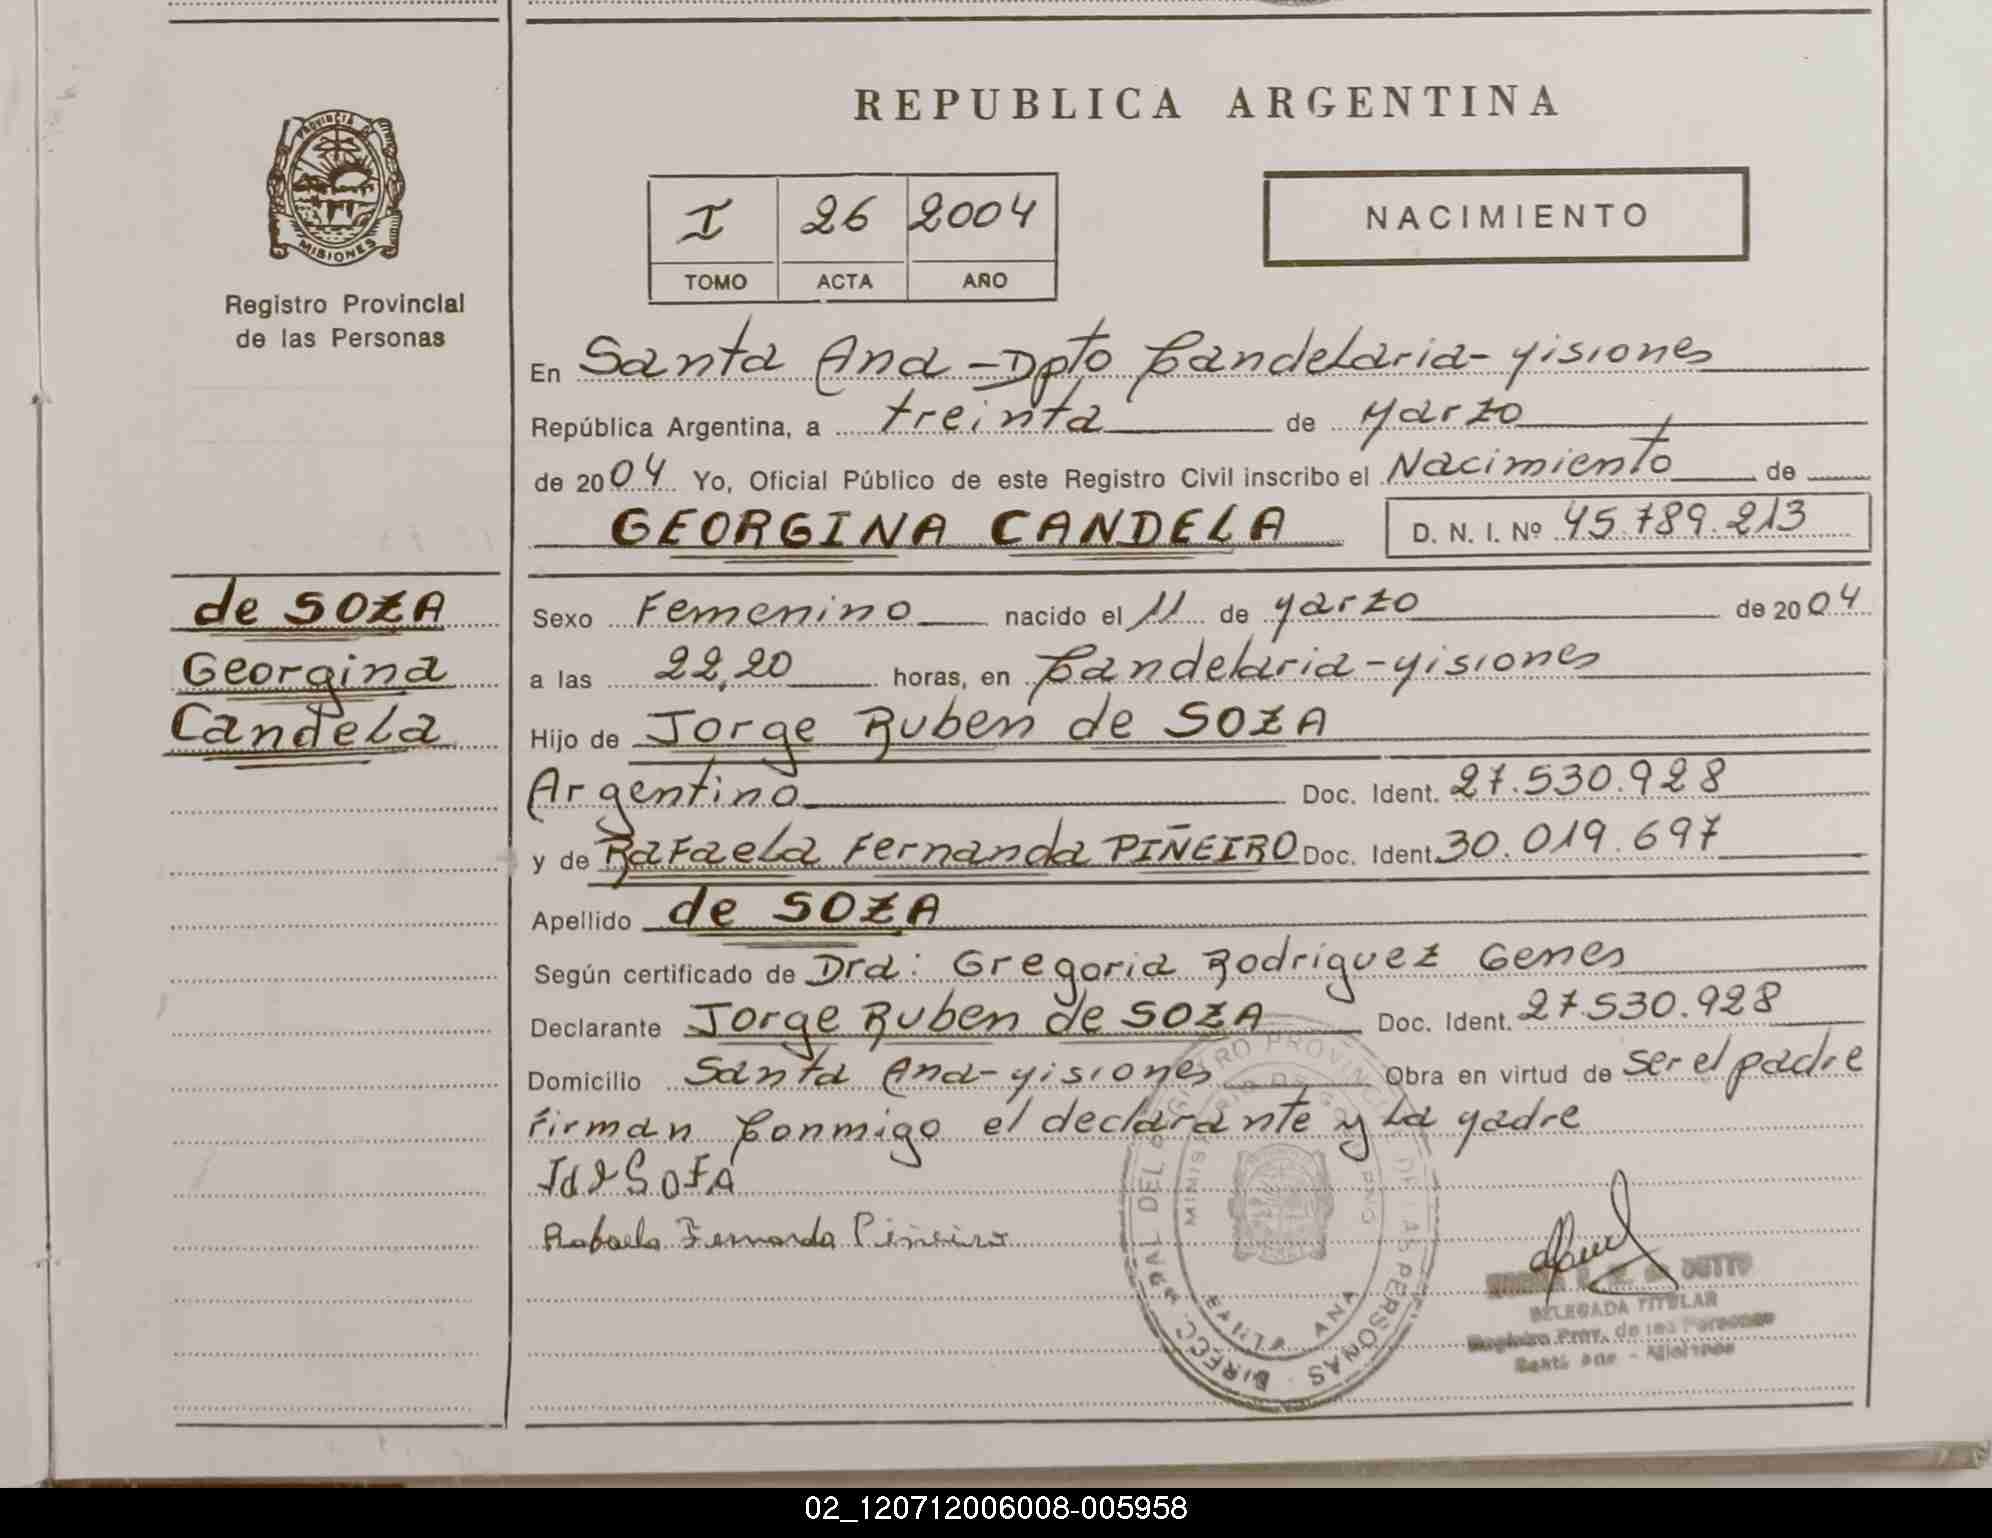 REPUBLICA ARGENTINA
PROVINCIA DE
MISIONES
Registro Provincial
de las Personas
I 26 2004
TOMO ACTA AÑO
NACIMIENTO
En Santa Ana - Dpto Candelaria - Misiones
República Argentina, a treinta de Marzo
de 2004 Yo, Oficial Público de este Registro Civil inscribo el Nacimiento de
GEORGINA CANDELA D. N. I. Nº 45.789.213
de SOZA
Georgina
Candela
Sexo Femenino nacido el 11 de Marzo de 2004
a las 22,20 horas, en Candelaria - Misiones
Hijo de Jorge Ruben de SOZA
Argentino Doc. Ident. 27.530.928
y de Rafaela Fernanda PIÑEIRO Doc. Ident. 30.019.697
Apellido de SOZA
Según certificado de Dra: Gregoria Rodriguez Genes
Declarante Jorge Ruben de SOZA Doc. Ident. 27.530.928
Domicilio Santa Ana - Misiones Obra en virtud de ser el padre
Firman Conmigo el declarante y La Madre
J d e SOZA
Rafaela Fernanda Piñeiro
DIRECC. GRAL DEL REGISTRO PROVINCIAL DE LAS PERSONAS
MINISTERIO DE GOBIERNO
SANTA ANA
DELEGADA TITULAR
Registro Prov. de las Personas
Santa Ana - Misiones
02_120712006008-005958